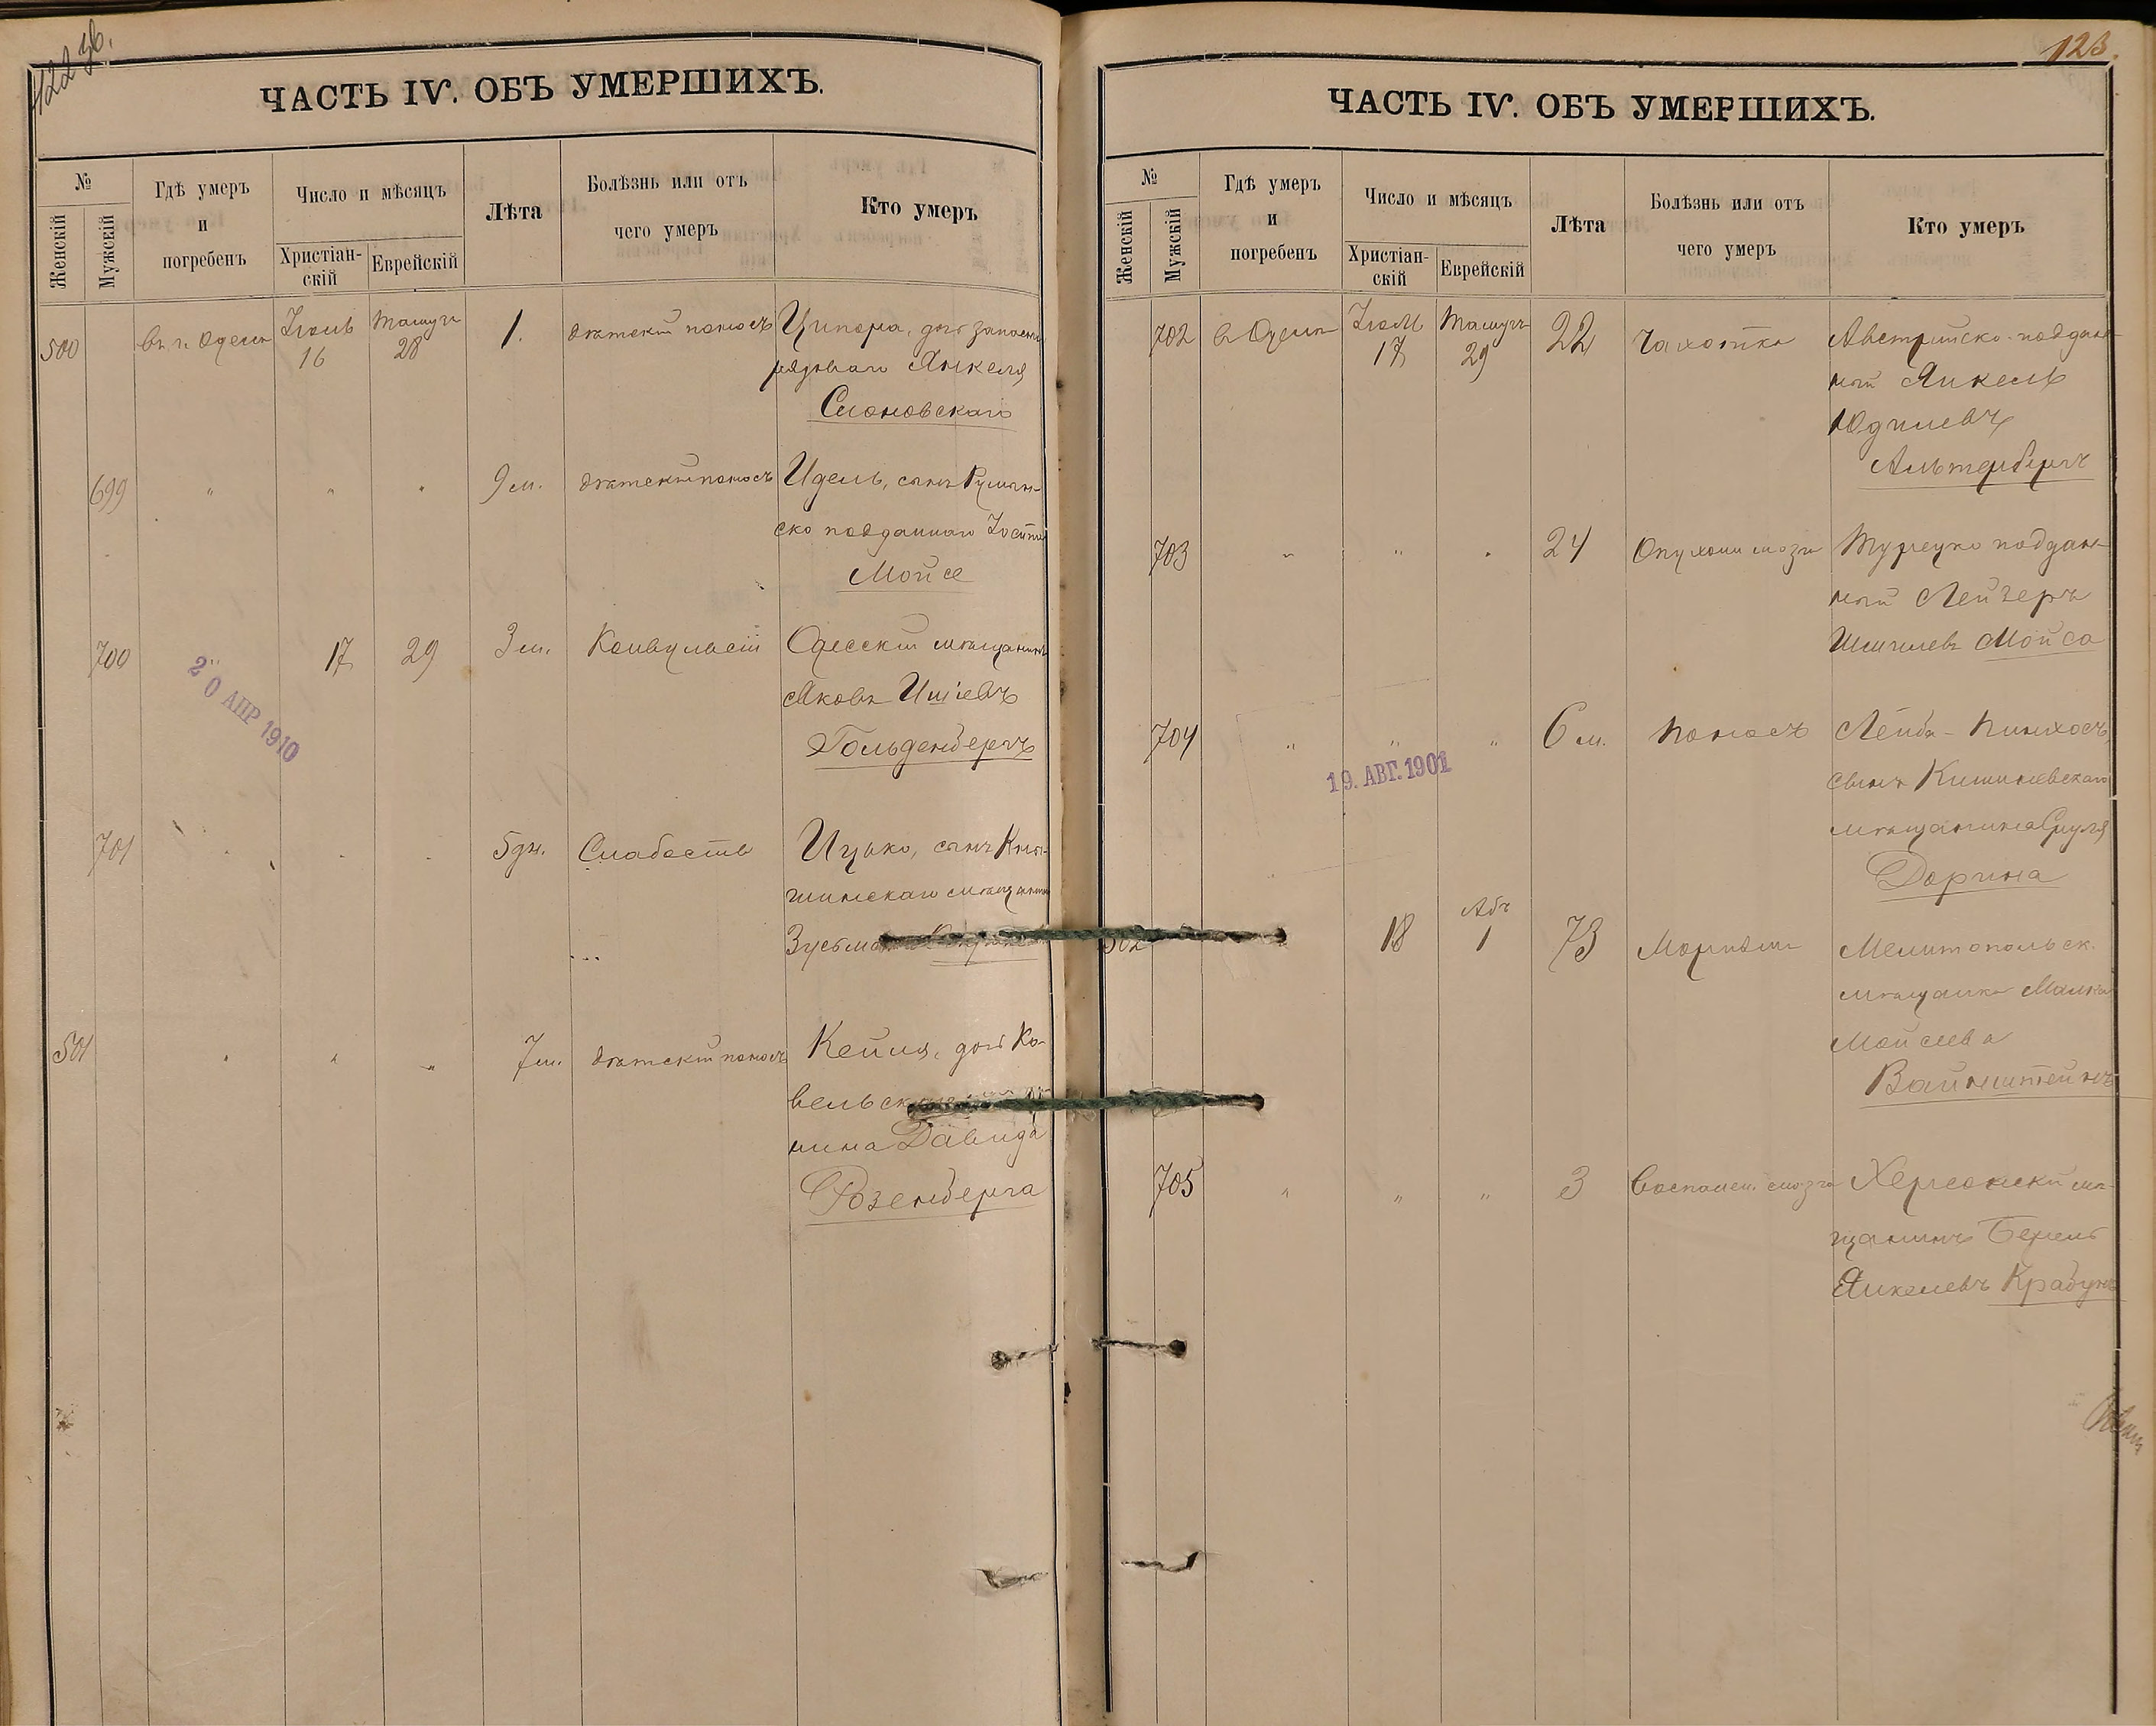 122 об.
ЧАСТЬ IV. ОБЪ УМЕРШИХЪ.
№
Женскій
Мужскій
Гдѣ умеръ
и
погребенъ
Число и мѣсяцъ
Христіан-
скій
Еврейскій
Лѣта
Болѣзнь или отъ
чего умеръ
Кто умеръ
500 въ г. Одессѣ Іюль 16 Тамузъ 28 1. дѣтскій поносъ Ципора, дочь запасн.
рядоваго Янкеля
Слоновскаго
699 " " " 9 м. дѣтскій поносъ Идель, сынъ Румын-
ско подданнаго
Мойсе
700 " 17 29 3 м. Конвульсіи Одесскій мѣщанинъ
Яковъ Ишіевъ
Гольденбергъ
20 АПР 1910
701 " " " 5 дн. Слабость Ицько, сынъ Кны-
шинскаго мѣщанина
Зусьмана
501 " " " 7 м. дѣтскій поносъ Кейля, дочь Ко-
вельскаго
нина Давида
Розенберга
123.
ЧАСТЬ IV. ОБЪ УМЕРШИХЪ.
№
Женскій
Мужскій
Гдѣ умеръ
и
погребенъ
Число и мѣсяцъ
Христіан-
скій
Еврейскій
Лѣта
Болѣзнь или отъ
чего умеръ
Кто умеръ
702 въ Одессѣ Іюль 17 Тамузъ 29 22 Чахотка Австрійско-поддан-
ный Янкель
Юдилевъ
Альтербергъ
703 " " " 24 Опухоли мозга Турецко поддан-
ный Лейзеръ
Шмилевъ Мойса
704 " " " 6 м. Поносъ Лейба-Пинхосъ,
сынъ Кишиневскаго
мѣщанина Сруля
Дорина
19. АВГ. 1901
502 18 Абъ 1 73 Мелитопольск.
мѣщанка Малка
Мойсеева
Вайнштейнъ
705 " " " 3 Воспален. мозга Херсонскій мѣ-
щанинъ Берель
Янкелевъ Крабунъ